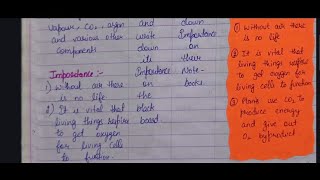 vapour, CO2, argon and down
and various other write Importance
components down on
its their
Importance:- Importance Note-
1) without air there on books
is no life the
2) It is vital that black
living things respire board.
to get oxygen
for living cells
to function.
1) without air there
is no life
2) It is vital that
living things respire
to get oxygen for
living cells to function
3) Plants use CO2 to
produce energy
and give out
O2 byproduct